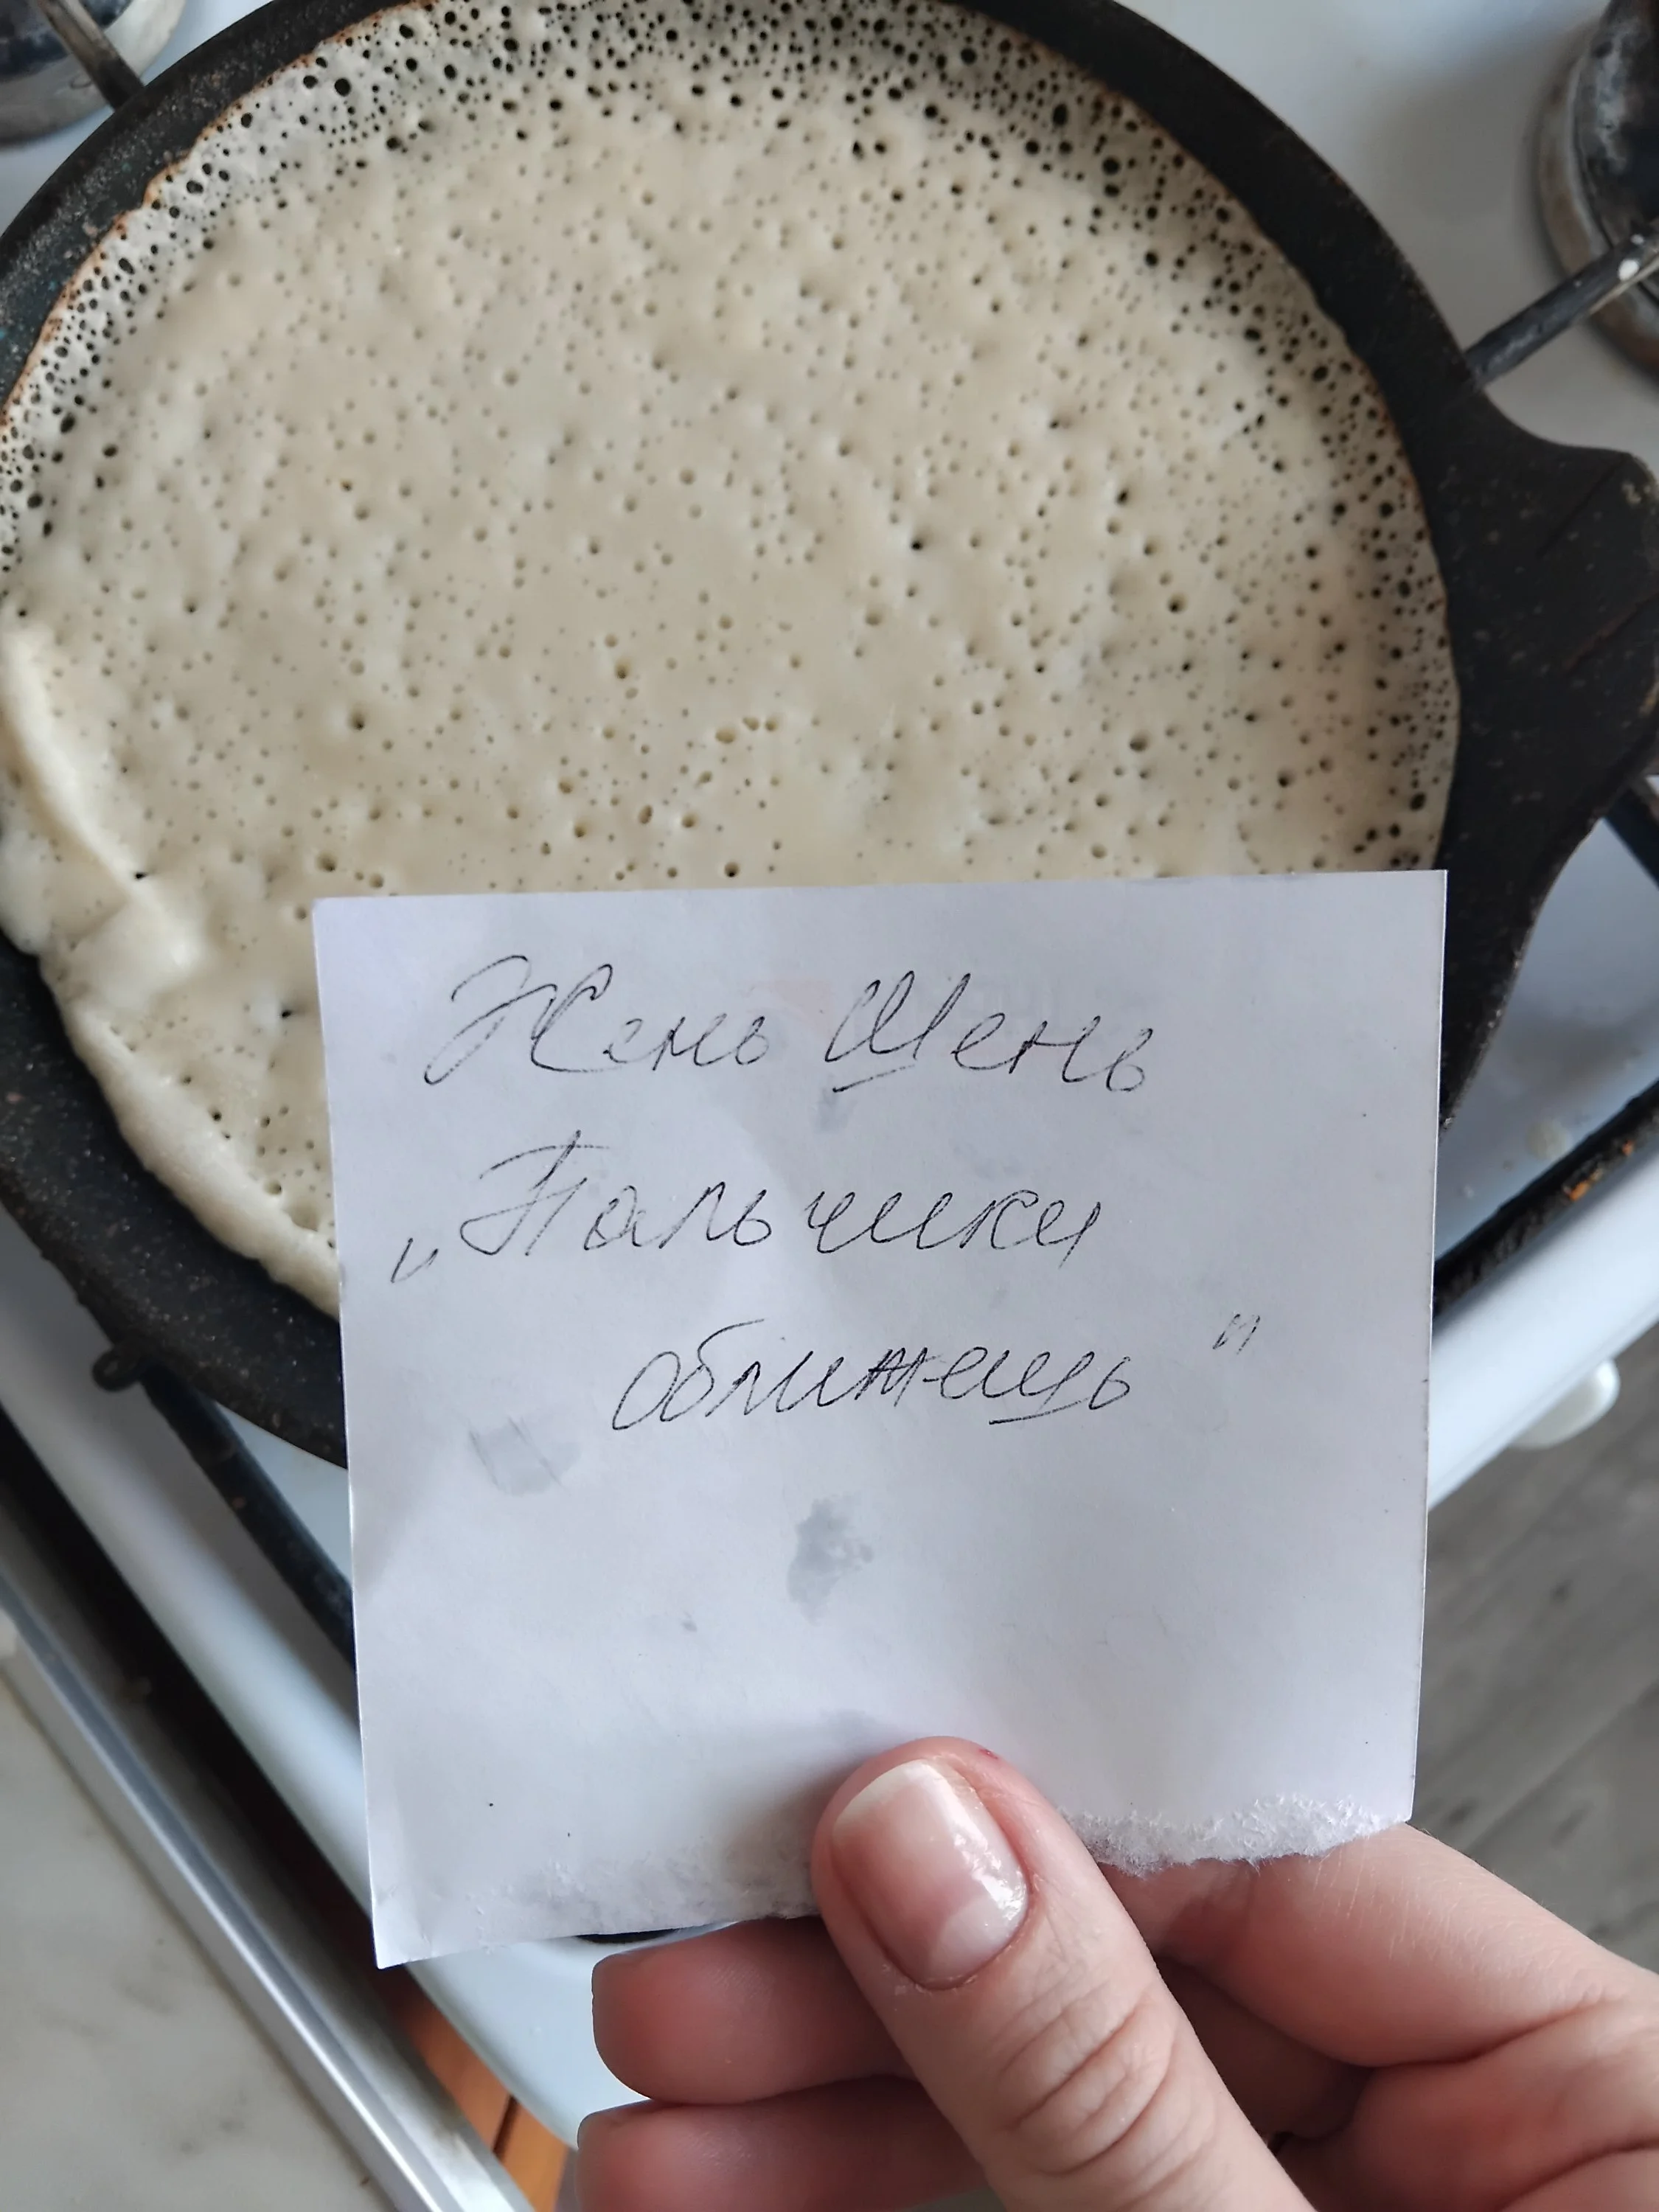 Жень Шень
„Пальчики
оближешь"